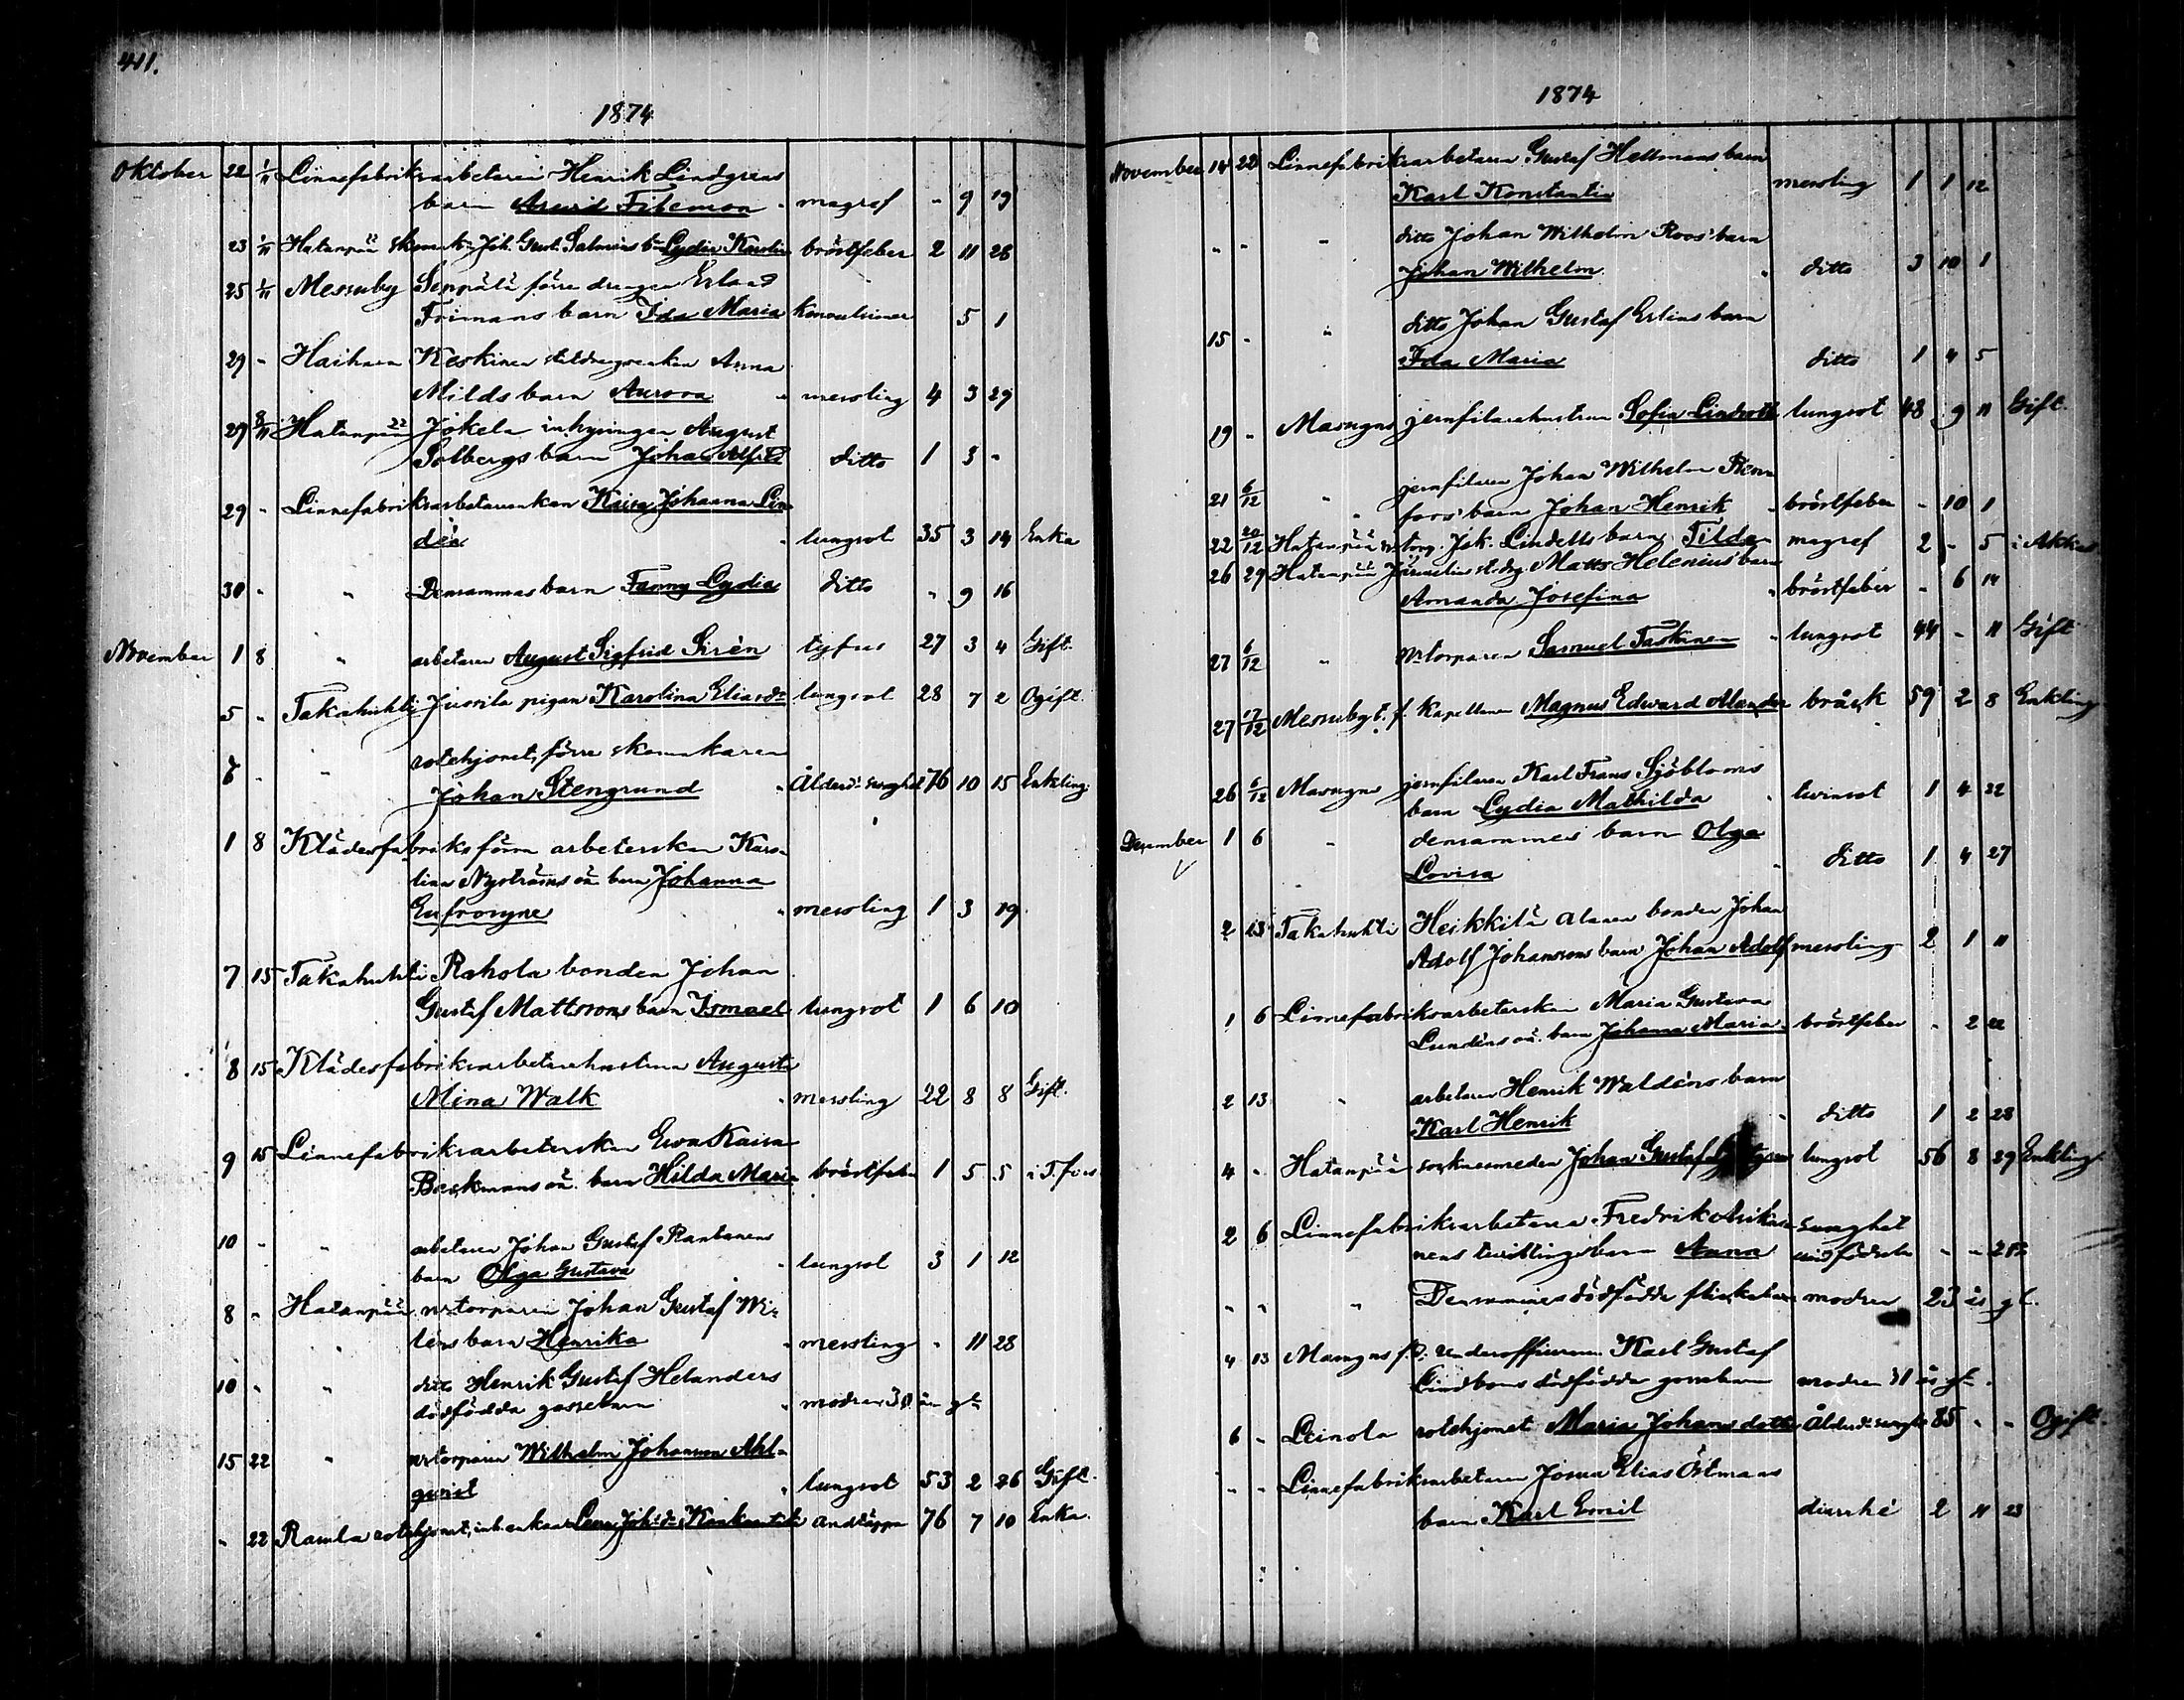 411.
1874
Oktober 22 1/11 Linnefabriksarbetaren Henrik Lindgrens
barn Arvid Filemon magref - 9 19
23 1/11 Hatanpää Joh. Gust. Salmens bn Lydia Karolin bröstfeber 2 11 28
25 1/11 Messuby Seppälä förre drengen Erland
Frimans barn Ida Maria Konvulsioner 5 1
29 - Haihara Keskinen Anna
Milds barn Aurora messling 4 3 29
29 8/11 Hatanpää Jokela inhysingen August
Solbergs barn Johan Alfred ditto 1 3 -
29 - Linnefabriksarbetarenkan Kaisa Johanna Lin-
dén lungsot 35 3 14 Enka
30 - " Densammas barn Fanny Lydia ditto - 9 16
November 1 8 " arbetaren August Sigfrid Sirén tyfus 27 3 4 Gift.
5 - Takahuhti Jussila pigan Karolina Eliasdr lungsot 28 7 2 Ogift.
7 - " rotehjonet, förre skomakaren
Johan Stengrund Ålderd. svaghet 76 10 15 Enkling
1 8 Klädesfabriks förra arbeterskan Karo-
lina Nyströms oä. barn Johanna
Eufrosyne messling 1 3 19
7 15 Takahuhti Rahola bonden Johan
Gustaf Mattssons barn Ismael lungsot 1 6 10
8 15 Klädesfabriksarbetarehustrun Augusta
Mina Walk messling 22 8 8 Gift.
9 15 Linnefabriksarbeterskan Eva Kaisa
Backmans oä. barn Hilda Maria bröstfeber 1 5 5 i T.fors
10 - " arbetaren Johan Gustaf Rantanens
barn Olga Gustava lungsot 3 1 12
8 - Hatanpää mtorparen Johan Gustaf Wi-
léns barn Henrika messling - 11 28
10 - " ditto Henrik Gustaf Helanders
dödfödda gossebarn modren 30 år gl
15 22 " mtorparen Wilhelm Johansson Ahl-
qvist lungsot 53 2 26 Gift.
- 22 Rautla rotehjonet, inh. enkan Lena Joh:dr andtäppa 76 7 10 Enka
1874
November 14 22 Linnefabriksarbetaren Gustaf Hellmans barn
Karl Konstantin messling 1 1 12
- - " ditto Johan Wilhelm Roos' barn
Johan Wilhelm ditto 3 10 1
15 - " ditto Johan Gustaf Erlins barn
Ida Maria ditto 1 4 5
19 - Masugns jernfilarehustrun Sofia Lindroth lungsot 48 9 11 Gift.
21 6/12 " jernfilaren Johan Wilhelm
fors' barn Johan Henrik bröstfeber - 10 1
22 20/12 Hatanpää mtorp. Jak. Lindells barn Tilda magref 2 - 5 i Akkas
26 29 Hatanpää Matts Helenius barn
Amanda Josefina bröstfeber - 6 14
27 6/12 " mtorparen Samuel Taskinen lungsot 44 - 11 Gift
27 17/12 Messuby t. f. Kapellanen Magnus Edward Alander bråck 59 2 8 Enkling
26 6/12 Masugns jernfilaren Karl Frans Sjöbloms
barn Lydia Mathilda tvinsot 1 4 22
December 1 6 " densammes barn Olga
Lovisa ditto 1 4 27
2 13 Takahuhti Heikkilä Alanen bonden Johan
Adolf Johanssons barn Johan Adolf messling 2 1 11
1 6 Linnefabriksarbeterskan Maria Gustava
Lundéns oä. barn Johanna Maria bröstfeber - 2 22
2 13 " arbetaren Henrik Waldéns barn
Karl Henrik ditto 1 2 28
4 - Hatanpää socknesmeden Johan Gustaf lungsot 56 8 29 Enkling
2 6 Linnefabriksarbetaren Fredrik Asikai- svaghet
nens tvillingbarn Anna vid födseln - -
- - " Densammes dödfödda flickebarn modren 23 år gl.
4 13 Masugns f.d. underofficeren Karl Gustaf
Lindboms dödfödda gossebarn modren 31 år gl.
6 - Leinola rotehjonet Maria Johansdotter Ålderd. svaghet 85 - - Ogift.
- - Linnefabriksarbetaren Josua Elias Östmans
barn Karl Emil diarrhé 2 11 23